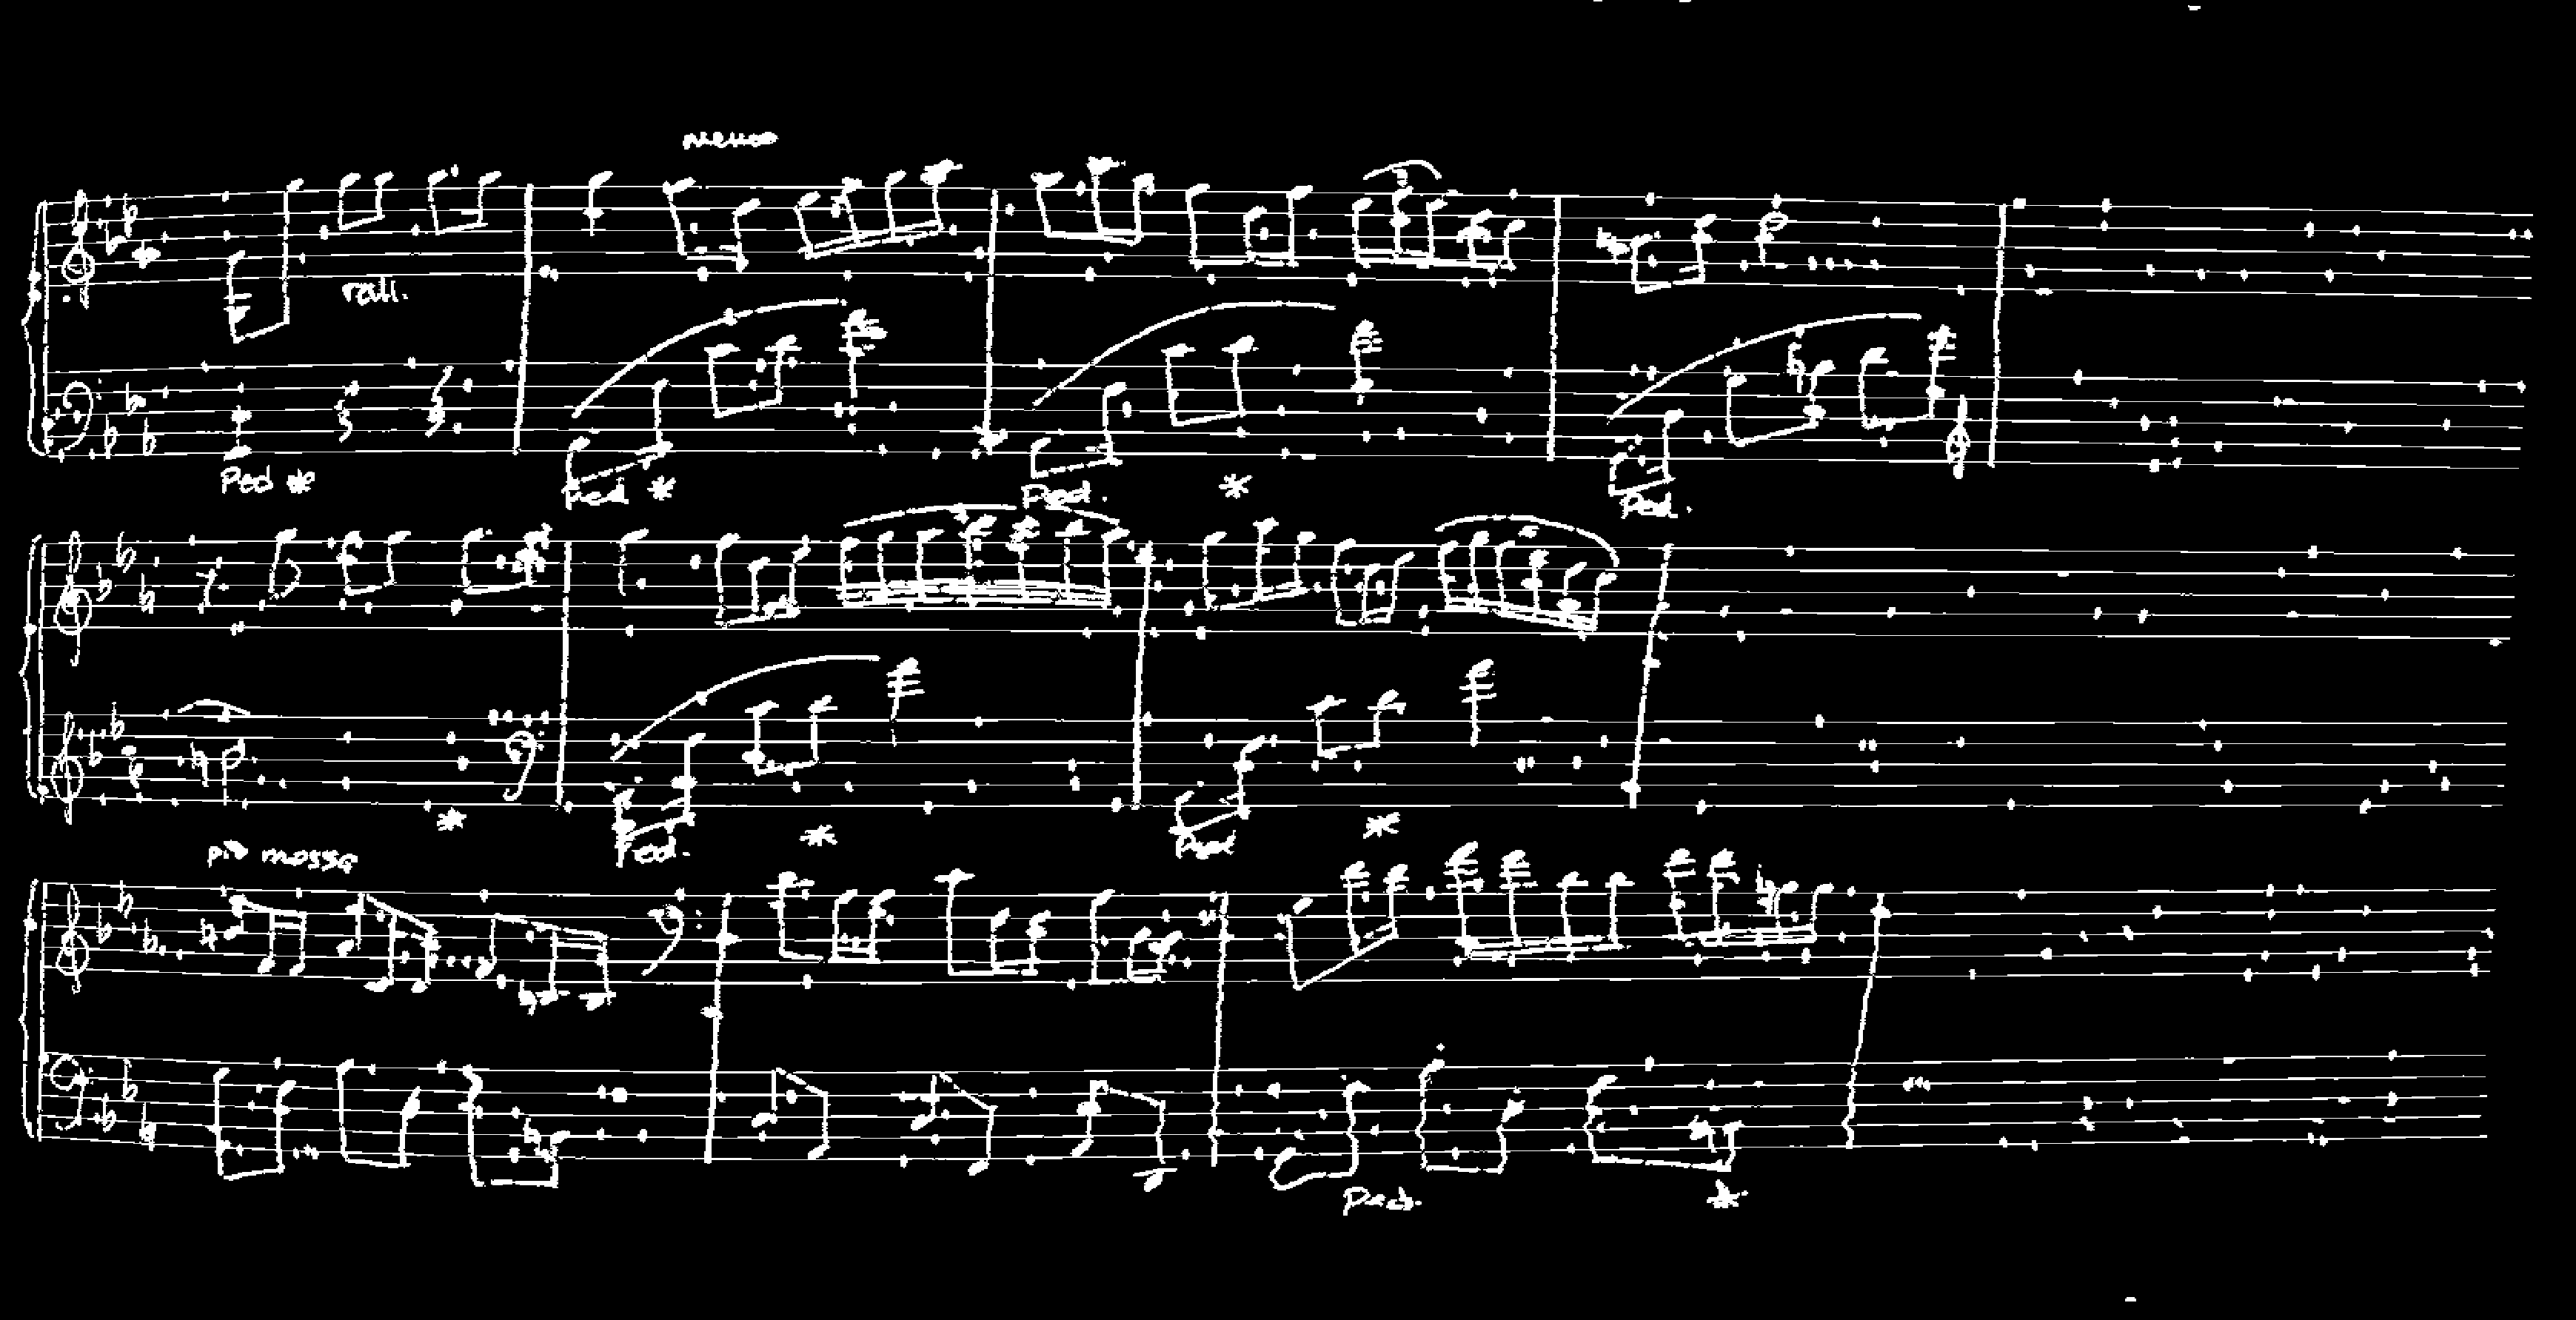 meno
rall.
Ped * Ped * Ped. * Ped.
* Ped. * Ped *
più mosso
Ped. *